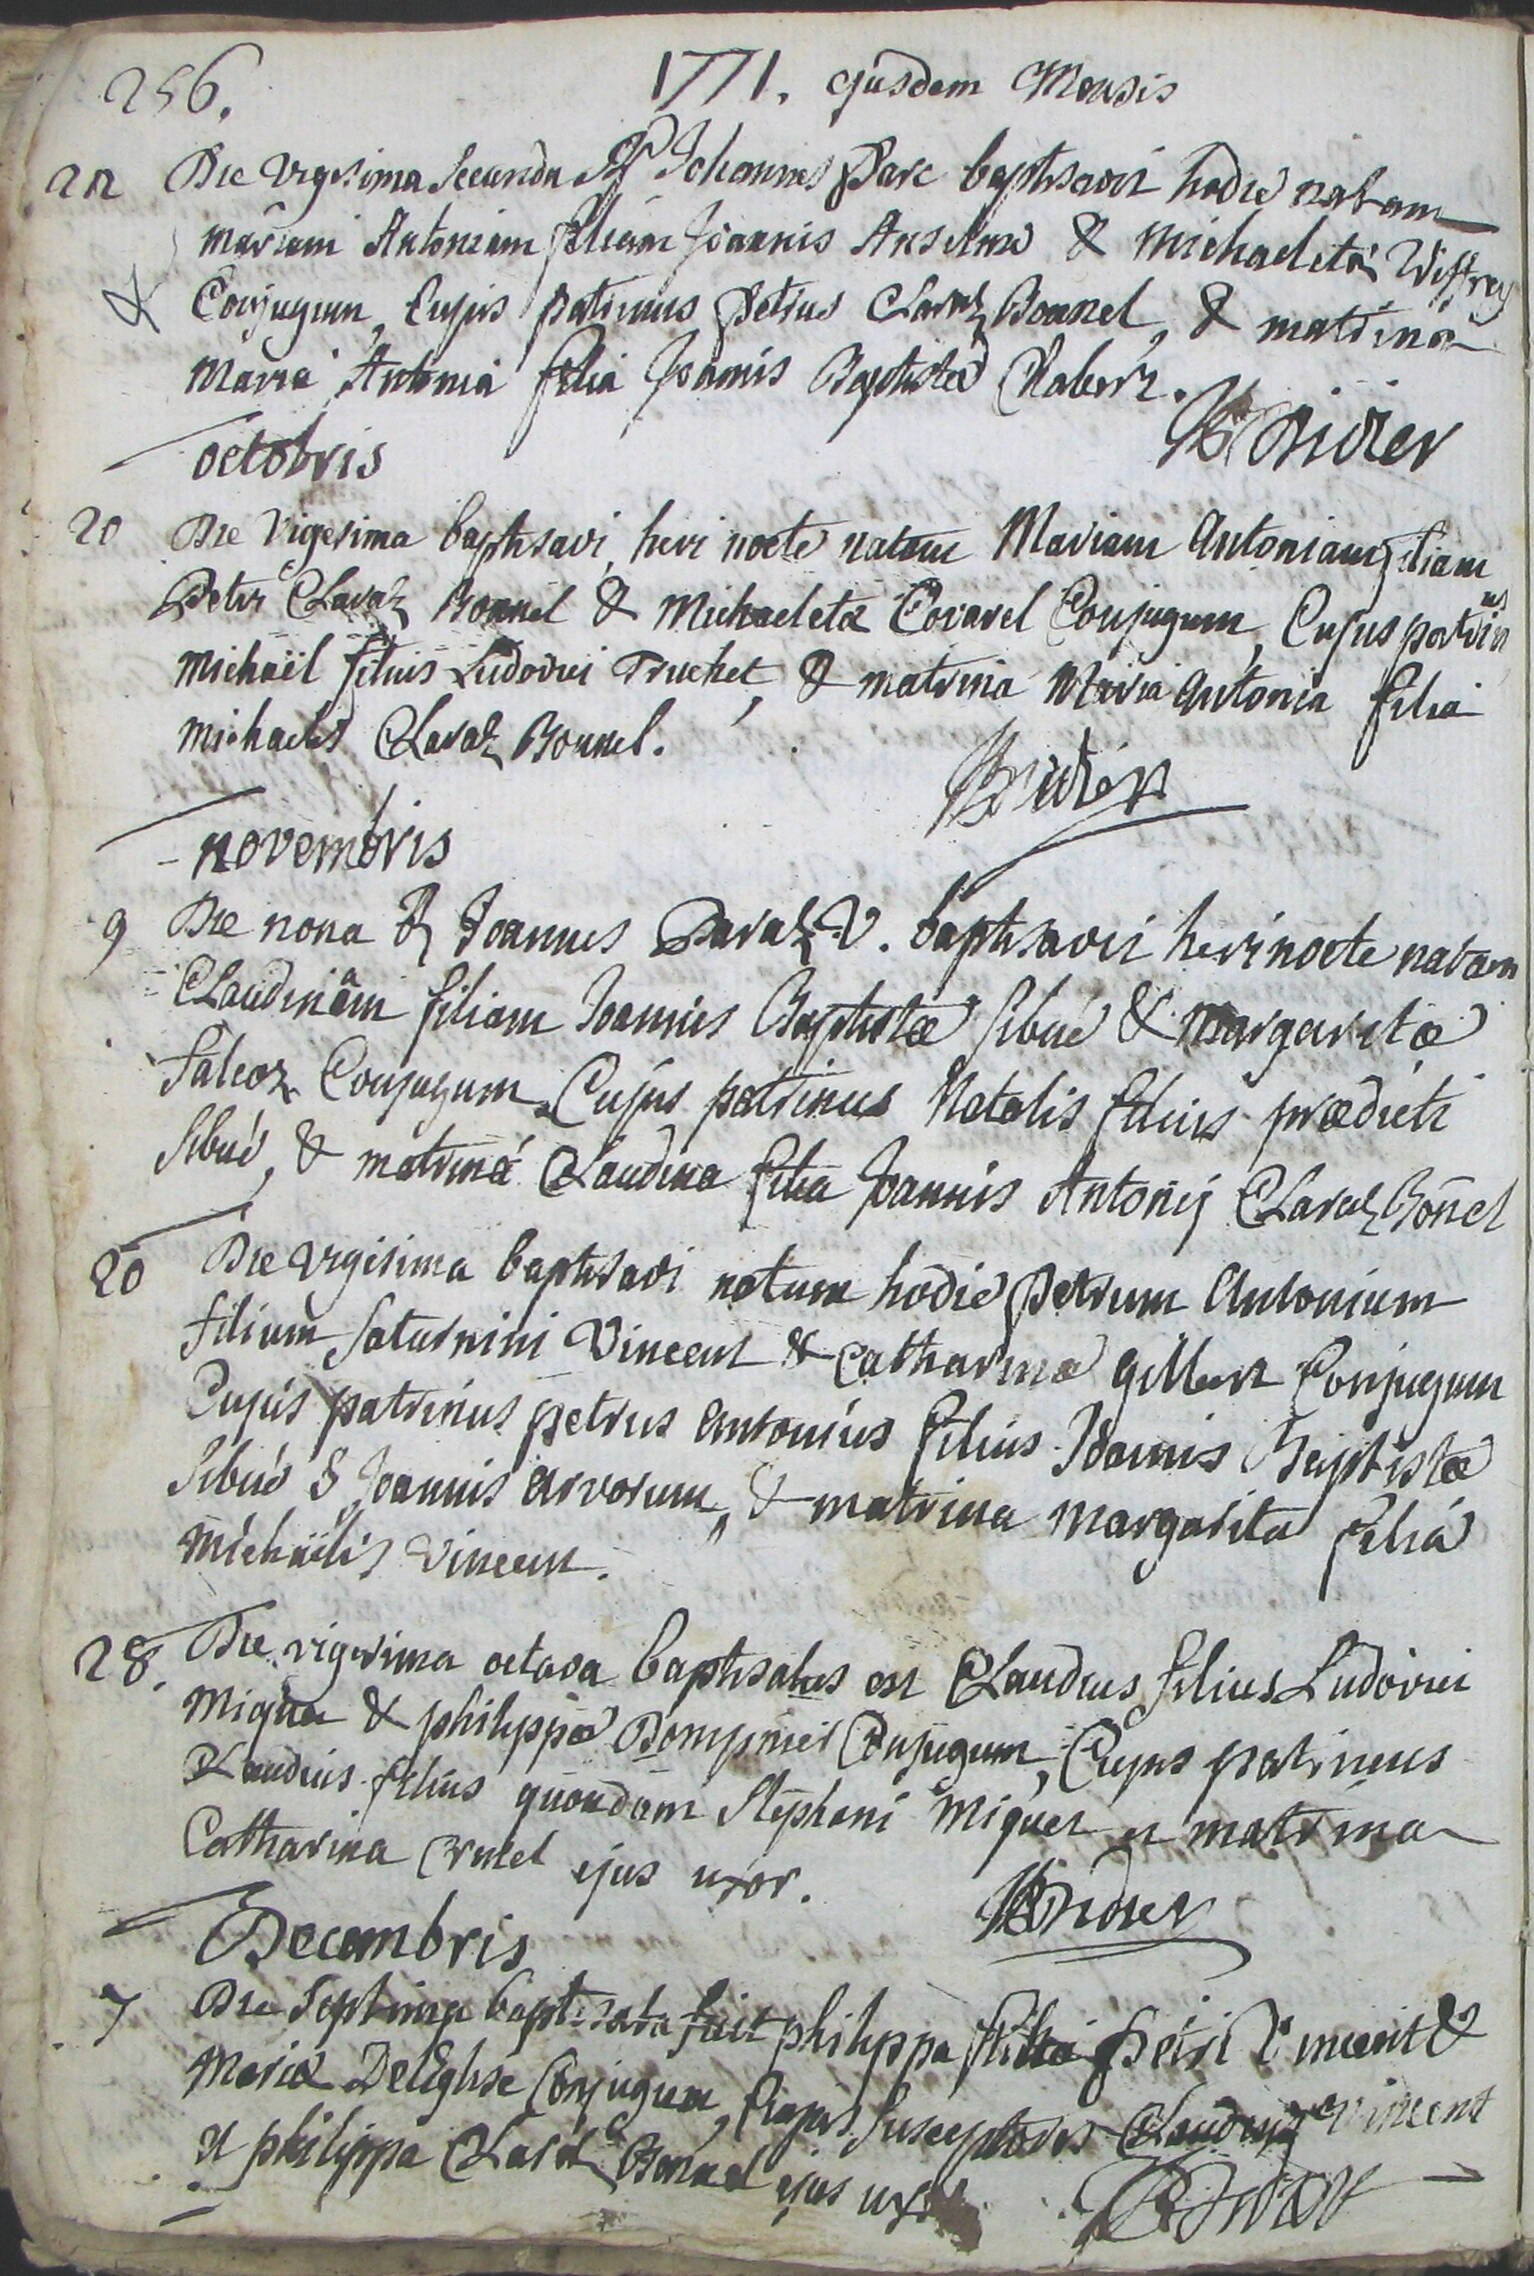 256.
1771. ejusdem Mensis
22 Die vigesima secunda Rd Johannes Parc baptisavit hodie natam
mariam Antoniam filiam Joannis Anselme & michaeletæ Viffrey
Conjugum, Cujus patrinus petrus Claraz Bonnel, & matrina
maria Antonia filia Joannis Baptistæ Chabert.
Didier
octobris
20 Die vigesima baptisavi heri nocte natam Mariam Antoniam filiam
Petri Claraz Bonnel & Michaeletæ Covarel Conjugum, Cujus patrinus
michaël filius Ludovici Truchet, & matrina Maria Antonia filia
michaelis Claraz Bonnel.
Didier
novembris
9 Die nona Rd Joannes Davaz V. baptisavit heri nocte natam
Claudinam filiam Joannis Baptistæ sibué & Margaritæ
falcoz Conjugum Cujus patrinus Natalis filius prædicti
sibué, & matrina Claudina filia Joannis Antonij Claraz Bonel
20 Die vigesima baptisavi natum hodie petrum Antonium
filium saturnini Vincent & catharinæ gilbert Conjugum
Cujus patrinus petrus antonius filius Joannis Baptistæ
sibué S Joannis arvorum, & matrina margarita filia
michäelis Vincent.
28. Die vigesima octava baptisatus est Claudius filius Ludovici
Miquet & philippæ Dompnier Conjugum, Cujus patrinus
Claudius filius quondam Stephani Miquet et matrina
Catharina Brunel ejus uxor.
Didier
Decembris
7 Die septima baptisata fuit philippa filia petri Vincent &
Mariæ Deléglise Conjugum, Cujus susceptores Claudius vincent
et philippa Claraz Bonnel ejus uxor
Didier